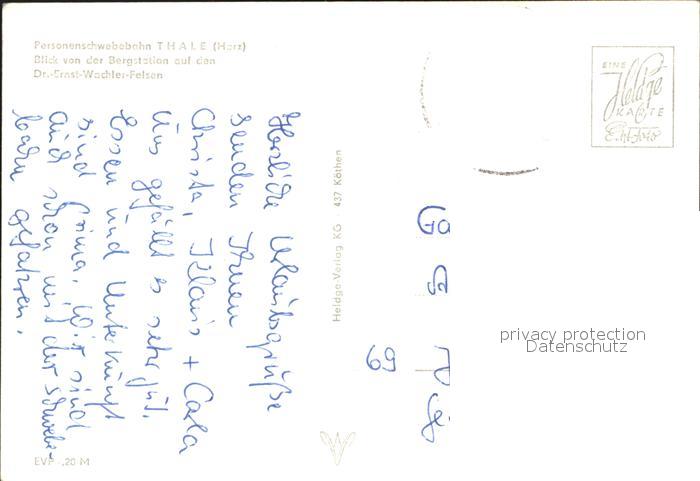 Personenschwebebahn THALE (Harz)
Blick von der Bergstation auf den
Dr.-Ernst-Wachler-Felsen
Herzliche Urlaubsgrüße
senden Ihnen
Christa, Klaus + Carla
Uns gefällt es sehr gut.
Essen und Unterkunft
sind prima. Wir sind
auch schon mit der Schwebe-
bahn gefahren.
EVP -,20 M
Heldge-Verlag KG · 437 Köthen
EINE
Heldge
KARTE
Echt-Foto
privacy protection
Datenschutz